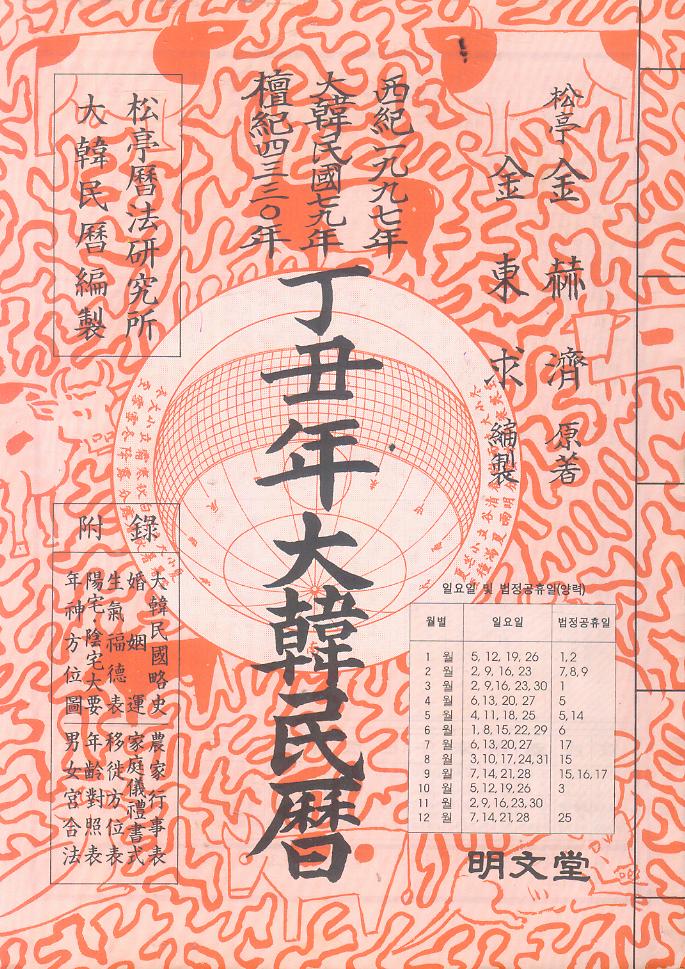 松亭 金赫濟 原著
金東求 編製
西紀一九九七年
大韓民國七九年
檀紀四三三○年
丁丑年大韓民曆
松亭曆法研究所
大韓民曆編製
附錄
大韓民國略史
婚姻運
生氣福德表
陽宅·陰宅大要
年神方位圖
農家行事表
家庭儀禮書式
移徙方位表
年齡對照表
男女宮合法
일요일 및 법정공휴일(양력)
월별 일요일 법정공휴일
1 월 5, 12, 19, 26 1, 2
2 월 2, 9, 16, 23 7, 8, 9
3 월 2, 9, 16, 23, 30 1
4 월 6, 13, 20, 27 5
5 월 4, 11, 18, 25 5, 14
6 월 1, 8, 15, 22, 29 6
7 월 6, 13, 20, 27 17
8 월 3, 10, 17, 24, 31 15
9 월 7, 14, 21, 28 15, 16, 17
10 월 5, 12, 19, 26 3
11 월 2, 9, 16, 23, 30
12 월 7, 14, 21, 28 25
明文堂